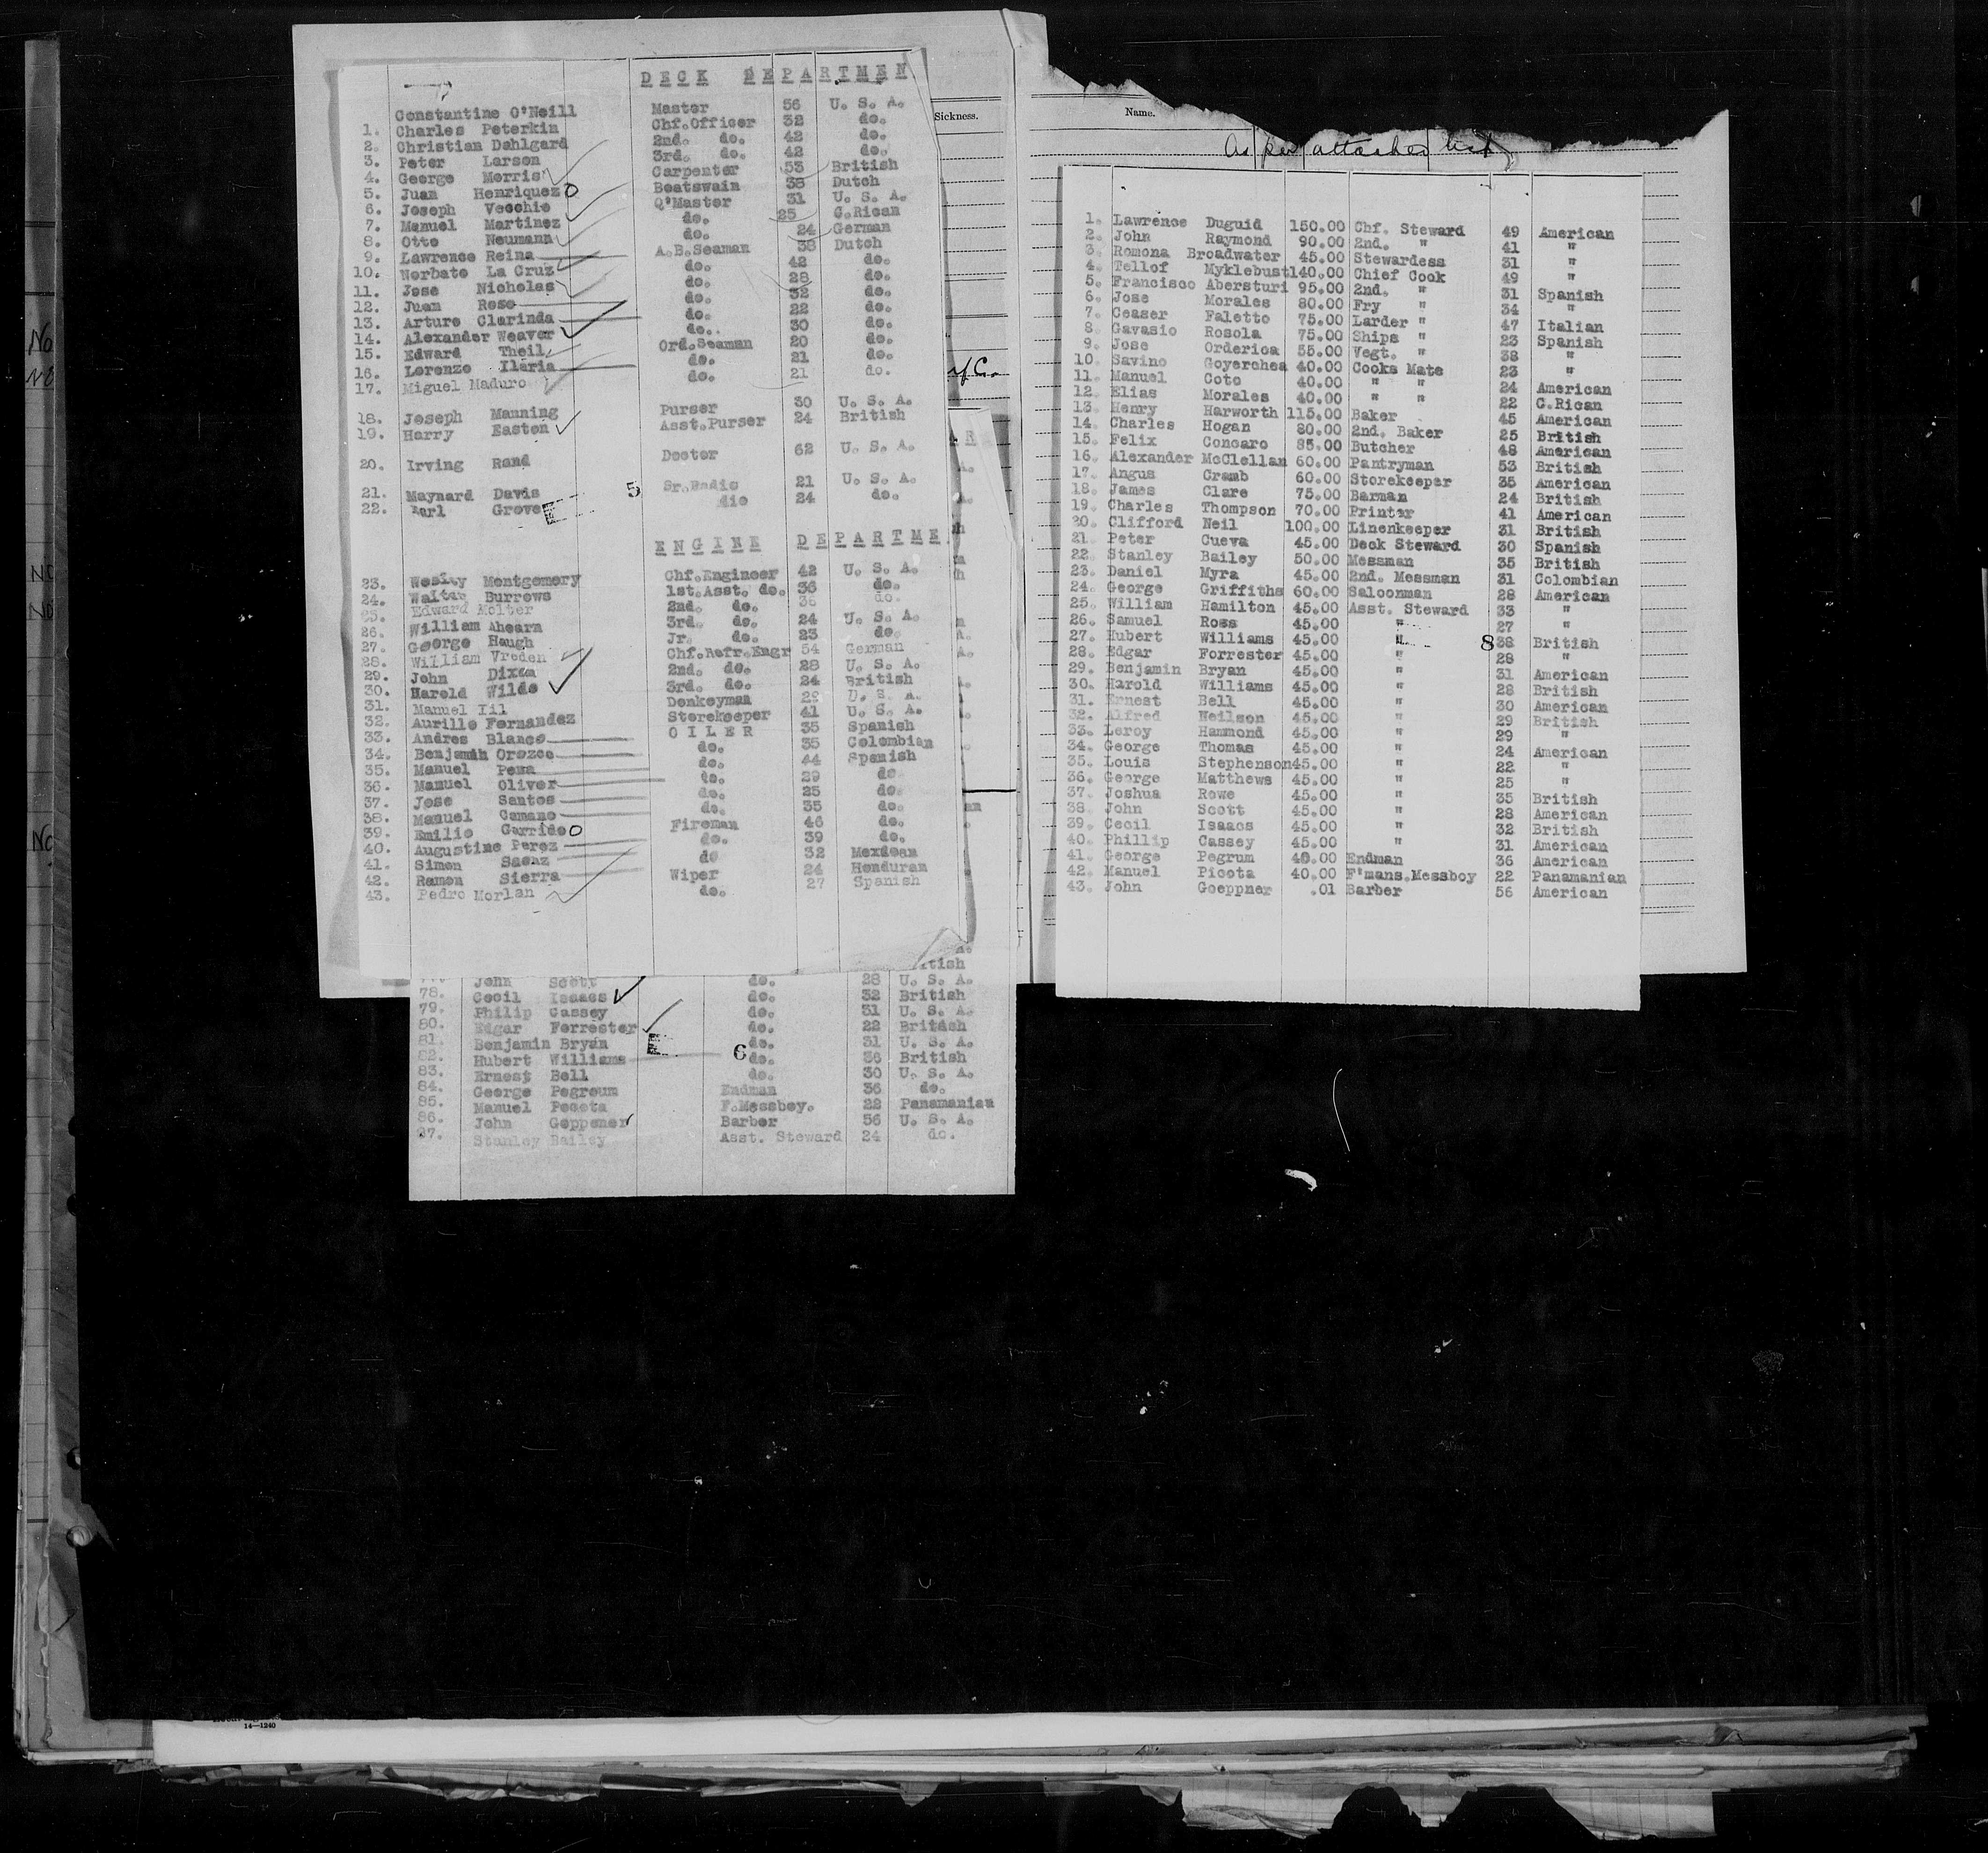 DECK DEPARTMEN
Constantine O'Neill Master 56 U. S. A.
1. Charles Peterkin Chf.Officer 32 do.
2. Christian Dahlgard 2nd. do. 42 do.
3. Peter Larson 3rd. do. 42 do.
4. George Morris Carpenter 53 British
5. Juan Henriquez O Boatswain 38 Dutch
6. Joseph Vecchio Q'Master 31 U. S. A.
7. Manuel Martinez do. 25 C.Rican
8. Otto Neumann do. 24 German
9. Lawrence Reina A.B.Seaman 38 Dutch
10. Norbato La Cruz do. 42 do.
11. Jose Nicholas do. 28 do.
12. Juan Rose do. 32 do.
13. Arturo Clarinda do. 22 do.
14. Alexander Weaver do. 30 do.
15. Edward Theil Ord.Seaman 20 do.
16. Lorenzo Ilaria do. 21 do.
17. Miguel Maduro do. 21 do.
18. Joseph Manning Purser 30 U. S. A.
19. Harry Easton Asst.Purser 24 British
20. Irving Rand Doctor 62 U. S. A.
21. Maynard Davis 5 Sr.Radio 21 U. S. A.
22. Earl Grove dio 24 do.
ENGINE DEPARTME
23. Wesley Montgomery Chf.Engineer 42 U. S. A.
24. Walter Burrows 1st.Asst. do. 36 do.
25. Edward Molter 2nd. do. 36 do.
26. William Ahearn 3rd. do. 24 U. S. A.
27. George Haugh Jr. do. 23 do.
28. William Vreden Chf.Refr.Engr 54 German
29. John Dixon 2nd. do. 28 U. S. A.
30. Harold Wilde 3rd. do. 24 British
31. Manuel Iil Donkeyman 29 U. S. A.
32. Aurillo Fernandez Storekeeper 41 U. S. A.
33. Andres Blanco OILER 35 Spanish
34. Benjamin Orozco do. 35 Colombian
35. Manuel Pena do. 44 Spanish
36. Manuel Oliver do. 29 do
37. Jose Santos do. 25 do.
38. Manuel Camano do. 35 do.
39. Emilio Garrido O Fireman 46 do.
40. Augustine Perez do. 39 do.
41. Simon Saenz do 32 Mexican
42. Ramon Sierra Wiper 24 Honduran
43. Pedro Morlan do. 27 Spanish
John Scott do. 28 U. S. A.
78. Cecil Isaacs do. 32 British
79. Philip Cassey do. 31 U. S. A.
80. Edgar Forrester do. 22 British
81. Benjamin Bryan do. 31 U. S. A.
82. Hubert Williams 6 do. 36 British
83. Ernest Bell do. 30 U. S. A.
84. George Pegroum Endman 36 do.
85. Manuel Pocota F.Messboy. 22 Panamanian
86. John Geppner Barber 56 U. S. A.
87. Stanley Bailey Asst. Steward 24 do.
Sickness.
Name.
As per attached list
1. Lawrence Duguid 150.00 Chf. Steward 49 American
2. John Raymond 90.00 2nd. " 41 "
3. Romona Broadwater 45.00 Stewardess 31 "
4. Tellof Myklebust 140.00 Chief Cook 49 "
5. Francisco Abersturi 95.00 2nd. " 31 Spanish
6. Jose Morales 80.00 Fry " 34 "
7. Ceaser Faletto 75.00 Larder " 47 Italian
8. Gavasio Rosola 75.00 Ships " 23 Spanish
9. Jose Orderica 55.00 Vegt. " 38 "
10. Savino Goyerchea 40.00 Cooks Mate 23 "
11. Manuel Coto 40.00 " " 24 American
12. Elias Morales 40.00 " " 22 C.Rican
13. Henry Harworth 115.00 Baker 45 American
14. Charles Hogan 80.00 2nd. Baker 25 British
15. Felix Concaro 85.00 Butcher 48 American
16. Alexander McClellan 60.00 Pantryman 53 British
17. Angus Cramb 60.00 Storekeeper 35 American
18. James Clare 75.00 Barman 24 British
19. Charles Thompson 70.00 Printer 41 American
20. Clifford Neil 100.00 Linenkeeper 31 British
21. Peter Cueva 45.00 Deck Steward 30 Spanish
22. Stanley Bailey 50.00 Messman 35 British
23. Daniel Myra 45.00 2nd. Messman 31 Colombian
24. George Griffiths 60.00 Saloonman 28 American
25. William Hamilton 45.00 Asst. Steward 33 "
26. Samuel Ross 45.00 " 27 "
27. Hubert Williams 45.00 " 8 38 British
28. Edgar Forrester 45.00 " 28 "
29. Benjamin Bryan 45.00 " 31 American
30. Harold Williams 45.00 " 28 British
31. Ernest Bell 45.00 " 30 American
32. Alfred Neilson 45.00 " 29 British
33. Leroy Hammond 45.00 " 29 "
34. George Thomas 45.00 " 24 American
35. Louis Stephenson 45.00 " 22 "
36. George Matthews 45.00 " 25 "
37. Joshua Rowe 45.00 " 35 British
38. John Scott 45.00 " 28 American
39. Cecil Isaacs 45.00 " 32 British
40. Phillip Cassey 45.00 " 31 American
41. George Pegrum 40.00 Endman 36 American
42. Manuel Picota 40.00 F'mans.Messboy 22 Panamanian
43. John Goeppner .01 Barber 56 American
No
No
No
No
No
14—1240